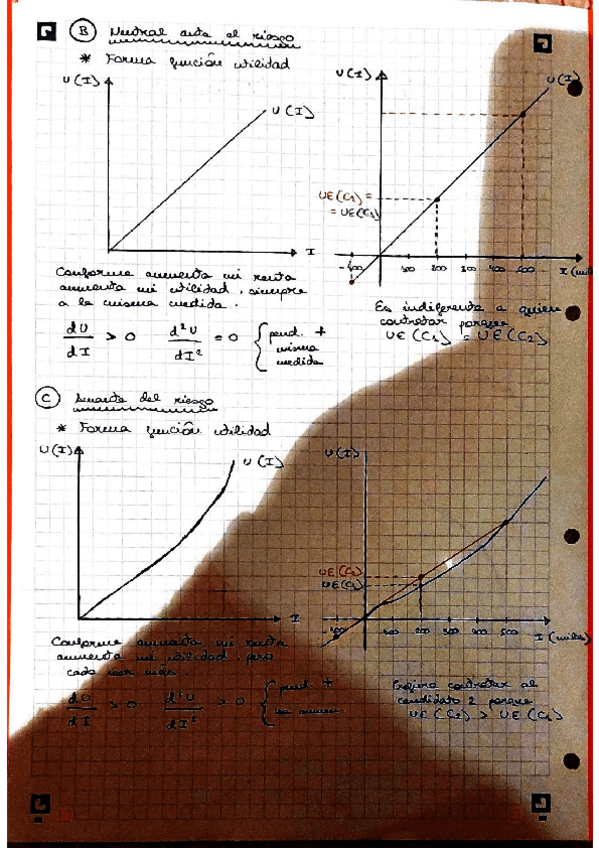 B Neutral ante el riesgo
* Forma función utilidad
U(I)
U(I)
I
U(I)
U(I)
UE(C1) =
= UE(C2)
-100 100 200 300 400 500 I (miles)
Conforme aumenta mi renta
aumenta mi utilidad, siempre
a la misma medida.
dU/dI > 0 d²U/dI² = 0 { pend. +
misma
medida
Es indiferente a quien
contratar porque
UE(C1) = UE(C2)
C Amante del riesgo
* Forma función utilidad
U(I)
U(I)
I
U(I)
UE(C2)
UE(C1)
100 200 300 400 500 I (miles)
Conforme aumenta mi renta
aumenta mi utilidad, pero
cada vez más.
dU/dI > 0 d²U/dI² > 0 { pend. +
contratar al
candidato 2 porque
UE(C2) > UE(C1)